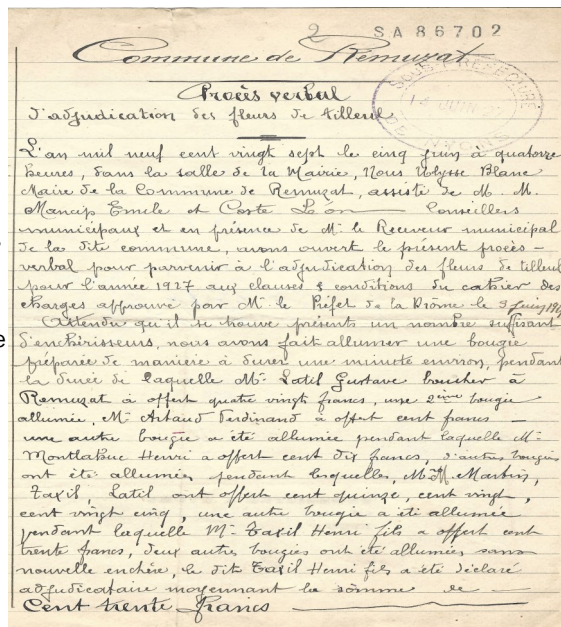 2 SA86702
Commune de Rémuzat
SOUS-PRÉFECTURE
14 JUIN 27
DE NYONS
Procès verbal
d'adjudication des fleurs de tilleul
L'an mil neuf cent vingt sept le cinq juin à quatorze
heures, dans la salle de la Mairie, Nous Ulysse Blanc
Maire de la Commune de Remuzat, assisté de M. M.
Mancip Emile et Coste Léon Conseillers
municipaux et en présence de Mr le Receveur municipal
de la dite commune, avons ouvert le présent procès-
verbal pour parvenir à l'adjudication des fleurs de tilleul
pour l'année 1927 aux clauses & conditions du cahier des
charges approuvé par Mr le Préfet de la Drôme le 3 juin
Attendu qu'il se trouve présents un nombre suffisant
d'enchérisseurs, nous avons fait allumer une bougie
préparée de manière à durer une minute environ, pendant
la durée de laquelle Mr Latil Gustave boucher à
Remuzat à offert quatre vingt francs, une 2ème bougie
allumée, Mr Artaud Ferdinand à offert cent francs —
une autre bougie a été allumée pendant laquelle Mr
Montlahuc Henri a offert cent dix francs, d'autres bougies
ont été allumées pendant lesquelles, M.M. Martin,
Taxil, Latil ont offert cent quinze, cent vingt,
cent vingt cinq, une autre bougie a été allumée
pendant laquelle Mr Taxil Henri fils a offert cent
trente francs, deux autres bougies ont été allumées sans
nouvelle enchère, le dit Taxil Henri fils a été déclaré
adjudicataire moyennant la somme de —
Cent trente francs